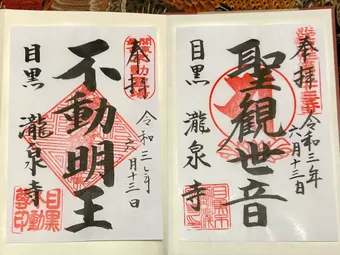 奉拝
令和三年
六月十三日
聖觀世音
目黒
瀧泉寺
奉拝
令和三年
六月十三日
不動明王
目黒
瀧泉寺
目黒
不動
尊印